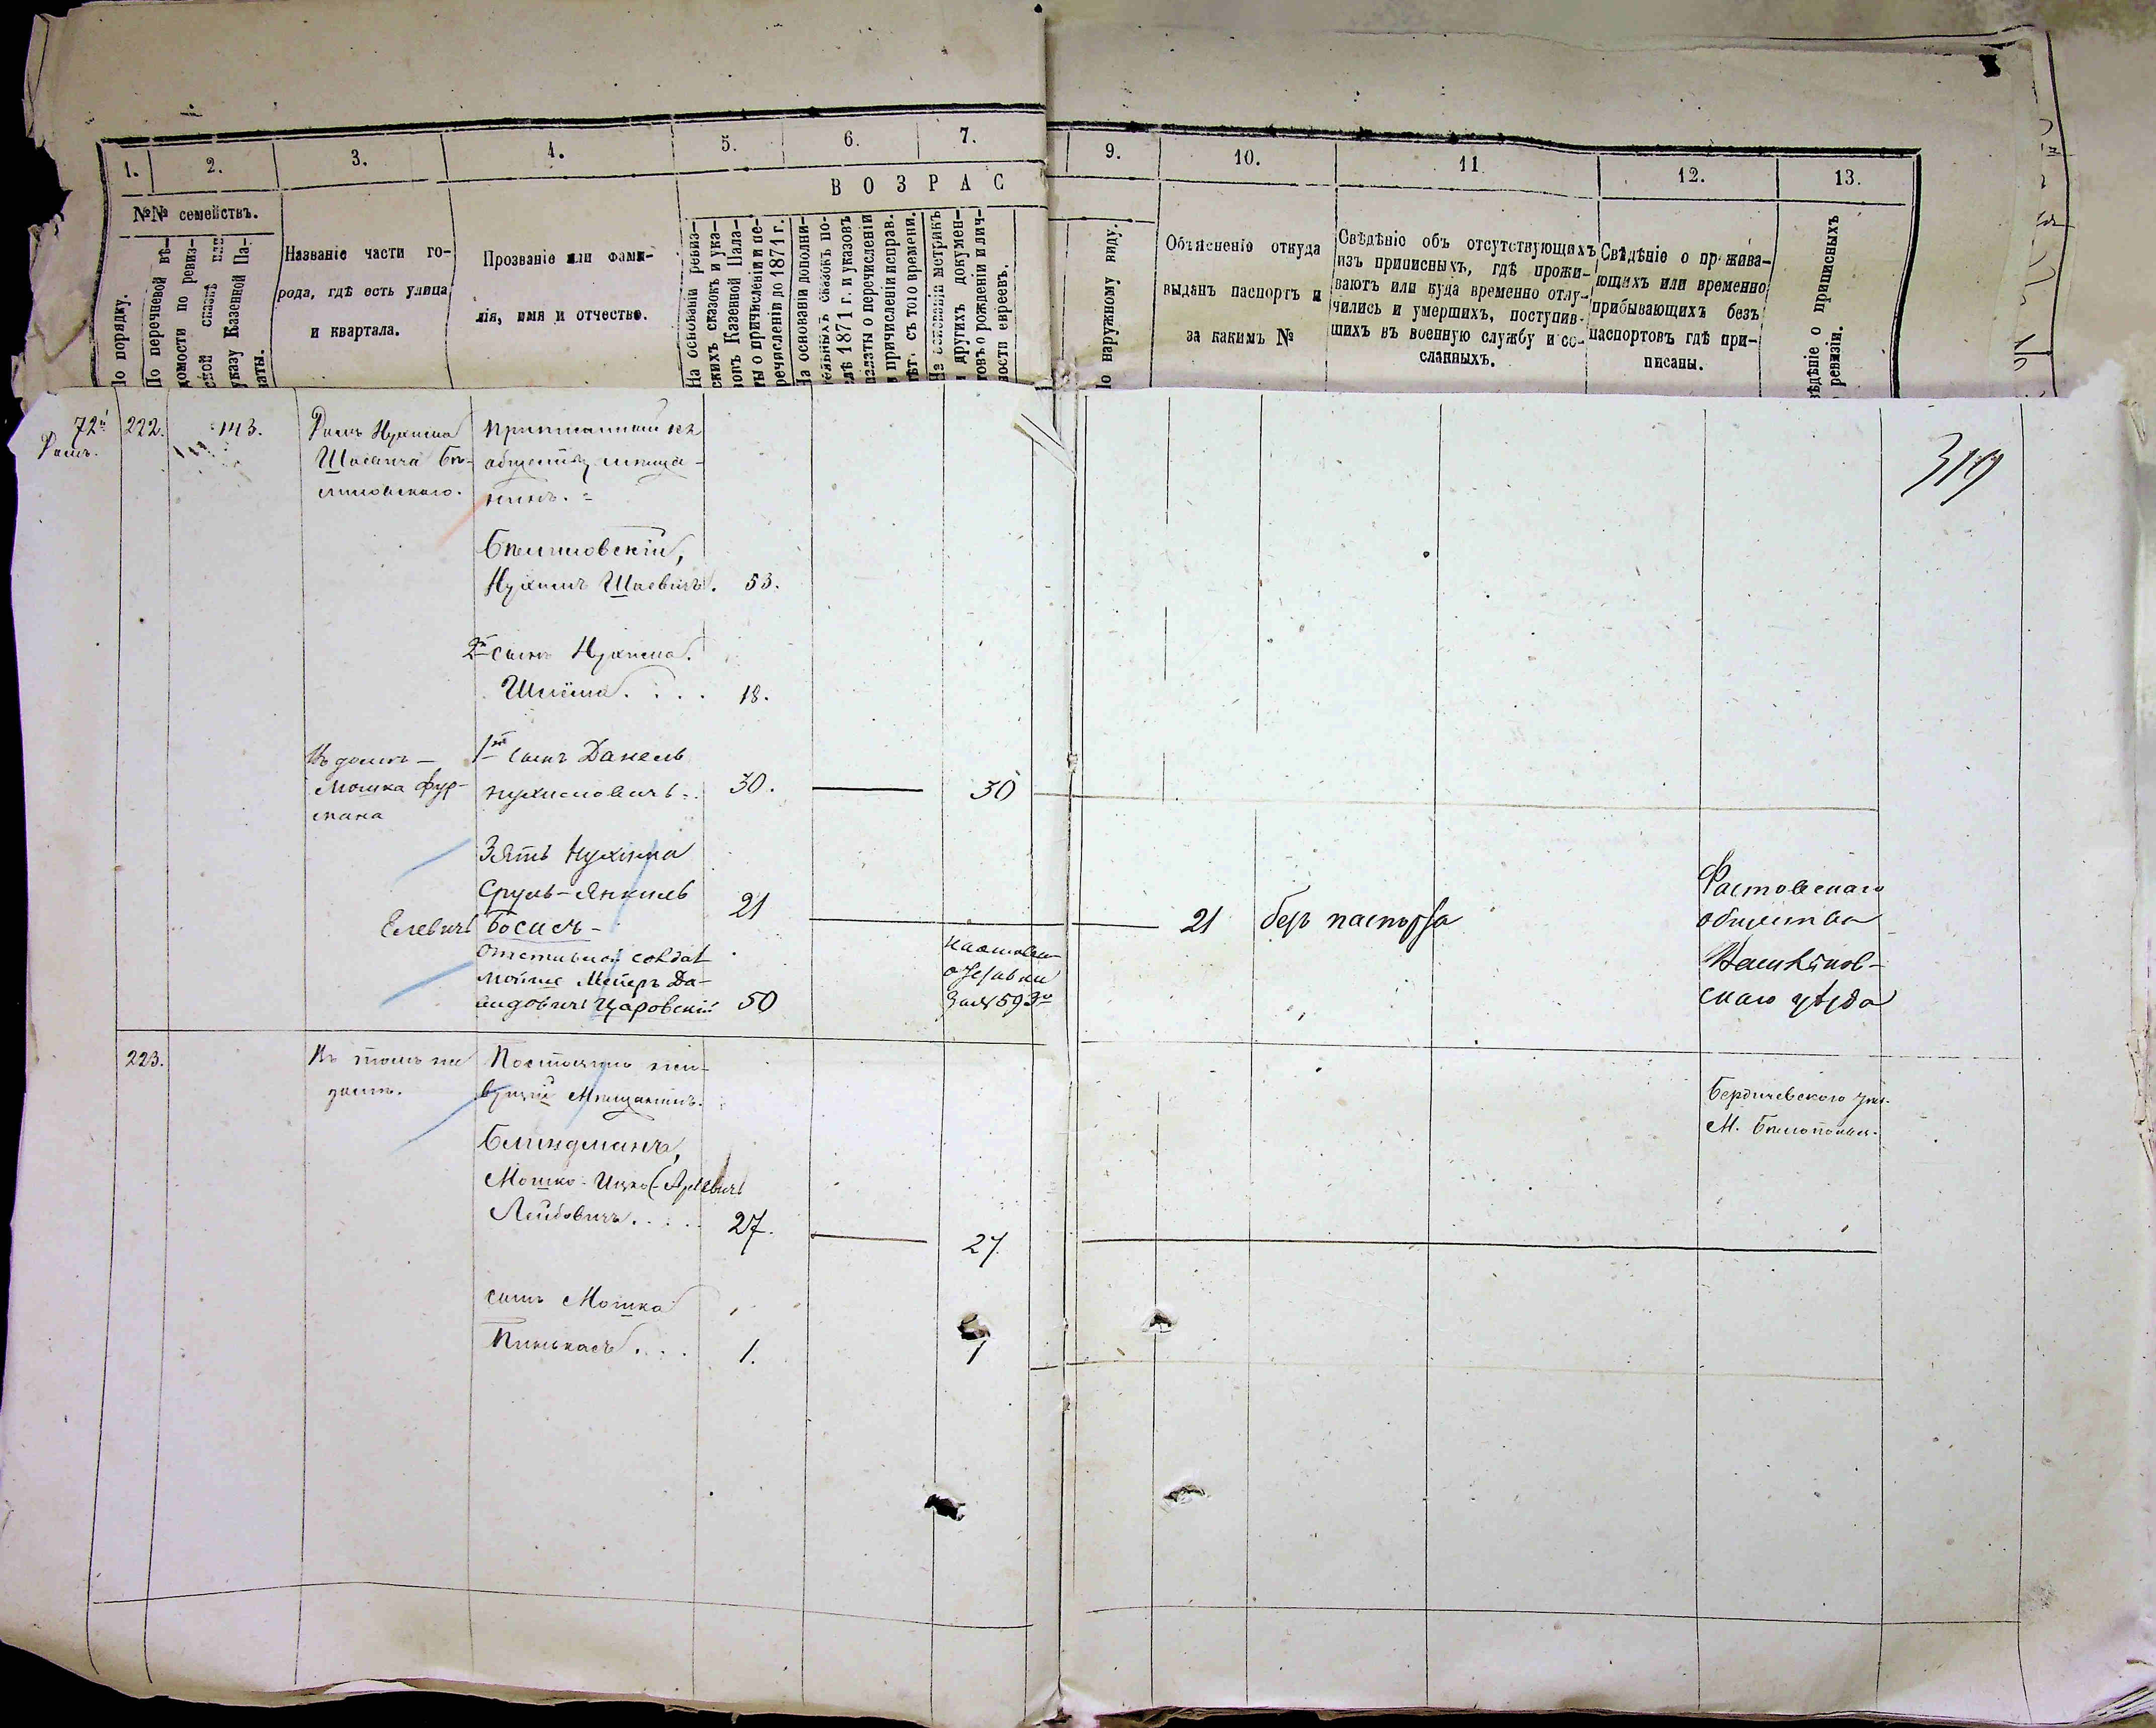 1. 2. 3. 4. 5. 6. 7. 9. 10. 11. 12. 13.
В О З Р А С
№№ семействъ.
По порядку.
По перечневой вѣ-
домости по ревиз-
ской сказкѣ или
указу Казенной Па-
латы.
Названіе части го-
рода, гдѣ есть улица
и квартала.
Прозваніе или фами-
лія, имя и отчество.
На основаніи ревиз-
скихъ сказокъ и ука-
зовъ Казенной Пала-
ты о причисленіи и пе-
речисленіи до 1871 г.
На основаніи дополни-
тельныхъ сказокъ по-
слѣ 1871 г. и указовъ
палаты о перечисленіи
и причисленіи исправ.
лѣт. съ того времени.
На основаніи метрикъ
и другихъ докумен-
товъ о рожденіи и лич-
ности евреевъ.
По наружному виду.
Объясненіо откуда
выданъ паспортъ и
за какимъ №
Свѣдѣніо объ отсутствующихъ
изъ приписныхъ, гдѣ прожи-
ваютъ или куда временно отлу-
чились и умершихъ, поступив-
шихъ въ военную службу и со-
сланныхъ.
Свѣдѣніе о прожива-
ющихъ или временно
прибывающихъ безъ
паспортовъ гдѣ при-
писаны.
Свѣдѣніе о приписныхъ
ревизіи.
72й
Домъ.
222.
143.
Домъ Нухима
Шаевича Бѣ-
лиловскаго.
Приписанный къ
обществу мѣща-
нинъ.
319
Бѣлиловскій,
Нухимъ Шаевичъ. 53.
2й сынъ Нухима
Шлёма. . . . 18.
Въ домѣ
Мошка Фур-
мана
1й сынъ Данель
Нухимовичъ. 30. 30
Зять Нухима
Сруль-Янкель
Елевичъ Босисъ 21 21 безъ паспорта
Фастовскаго
общества
Васильков-
скаго уѣзда
отставной солдат
Мойше Мейеръ Да-
видовичъ Царовскій 50
за № 593
223.
Въ томъ же
домѣ.
Постоянно жи-
вущій Мѣщанинъ.
Бердичевского уѣз.
М. Бѣлополья.
Блиндманъ,
Мошко-Ицко
Лейбовичъ. . . . 27. 27.
сынъ Мошка
Пинькасъ. . . . 1. 1